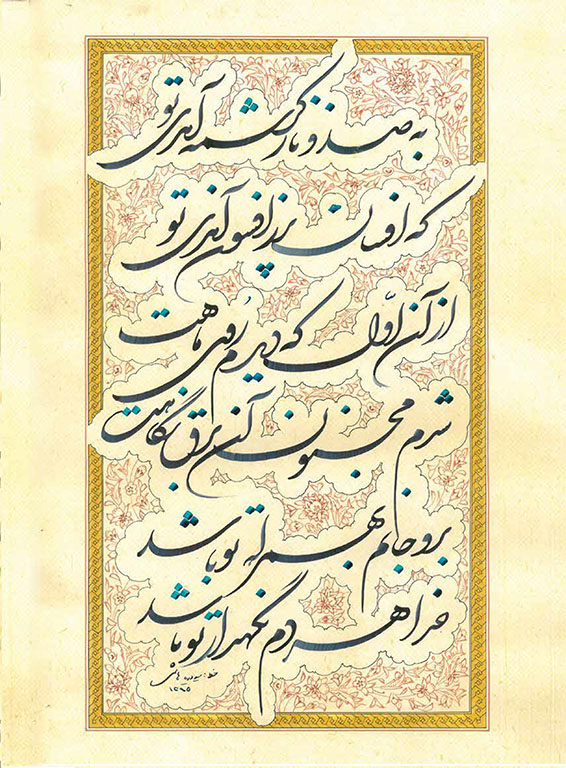 به صد ناز و کرشمه آمدی تو
که افسان پرز افسون آمدی تو
از آن اوّل که دیدم روُی ماهت
شدم مجنون آن برق نگاهت
برو جانم بهمراه تو باشد
خدا هر دم نگهدار تو باشد
۱۳۹۵